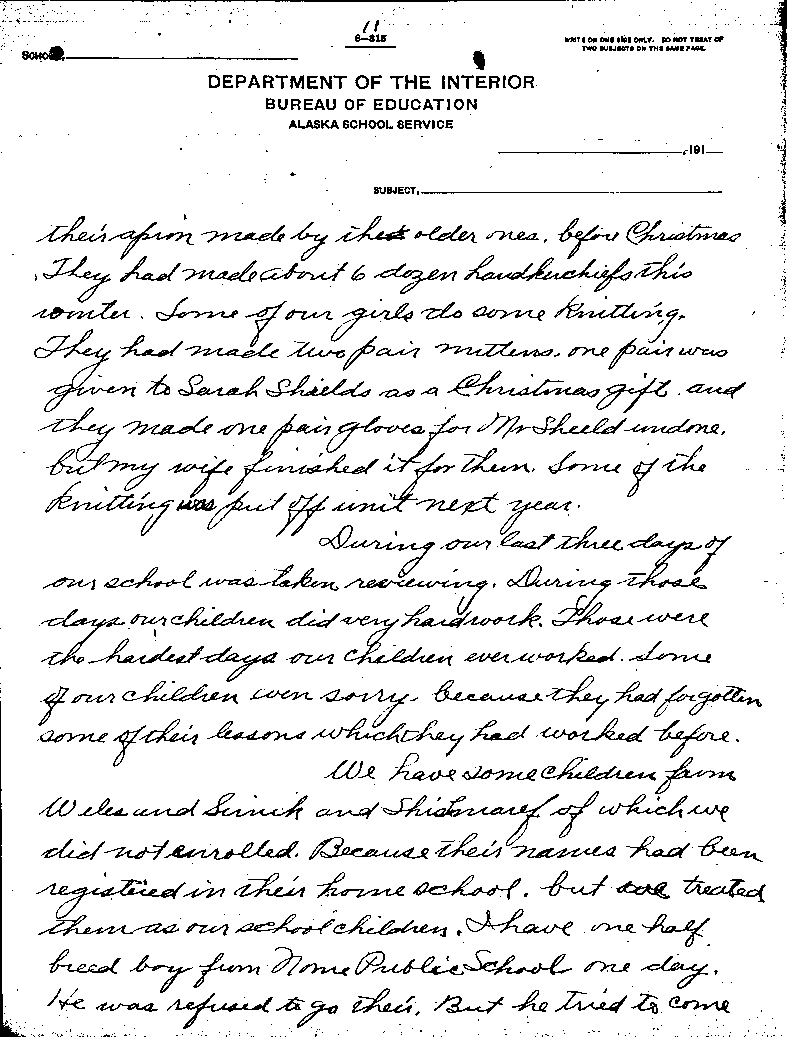 11
6-315
WRITE ON ONE SIDE ONLY. DO NOT TREAT OF
TWO SUBJECTS ON THE SAME PAGE.
SCHOOL,
DEPARTMENT OF THE INTERIOR
BUREAU OF EDUCATION
ALASKA SCHOOL SERVICE
, 191
SUBJECT,
their apron made by the older ones. before Christmas
They had made about 6 dozen handkerchiefs this
winter. Some of our girls do some knitting.
They had made two pair mittens. one pair was
given to Sarah Shields as a Christmas gift. and
they made one pair gloves for Mr Sheeld undone.
but my wife finished it for them. Some of the
knitting was put off unit next year.
During our last three days of
our school was taken reviewing. During those
days our children did very hard work. Those were
the hardest days our children ever worked. Some
of our children even sorry because they had forgotten
some of their lessons which they had worked before.
We have some children from
Wales and Sinik and Shishmaref of which we
did not enrolled. Because their names had been
registered in their home school. but we treated
them as our school children. I have one half
breed boy from Nome Public School one day.
He was refused to go their. But he tried to come